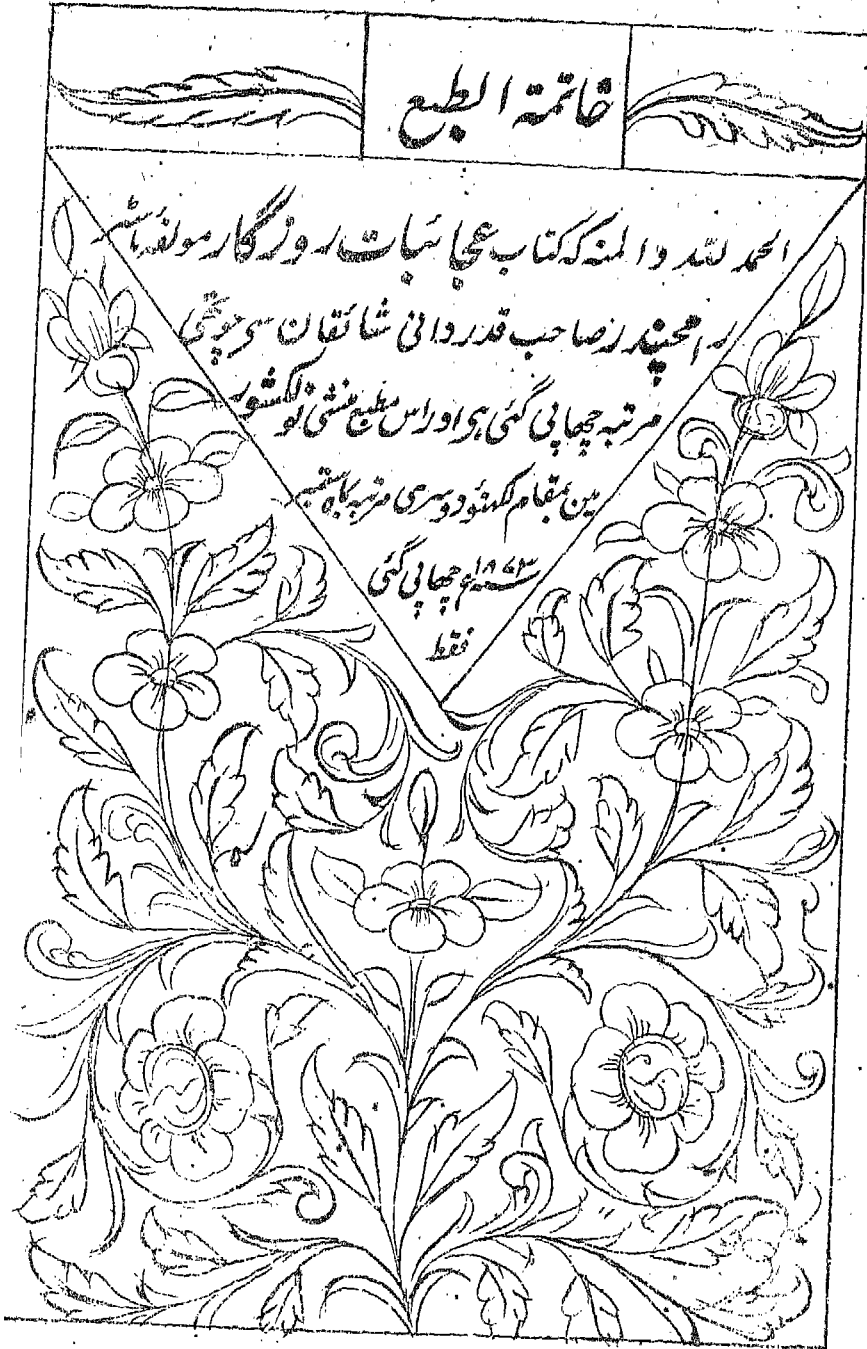 خاتمۃ الطبع
الحمد للہ والمنہ کہ کتاب عجائبات روزگار مولفہ ماسٹر
رامچندر صاحب قدر دانی شائقان سے چوتھی
مرتبہ چھاپی گئی ہی اور اس مطبع منشی نولکشور
مین بمقام لکہنؤ دوسری مرتبہ بماہ ستمبر
سنہ ۱۸۷۳ع چھاپی گئی
فقط